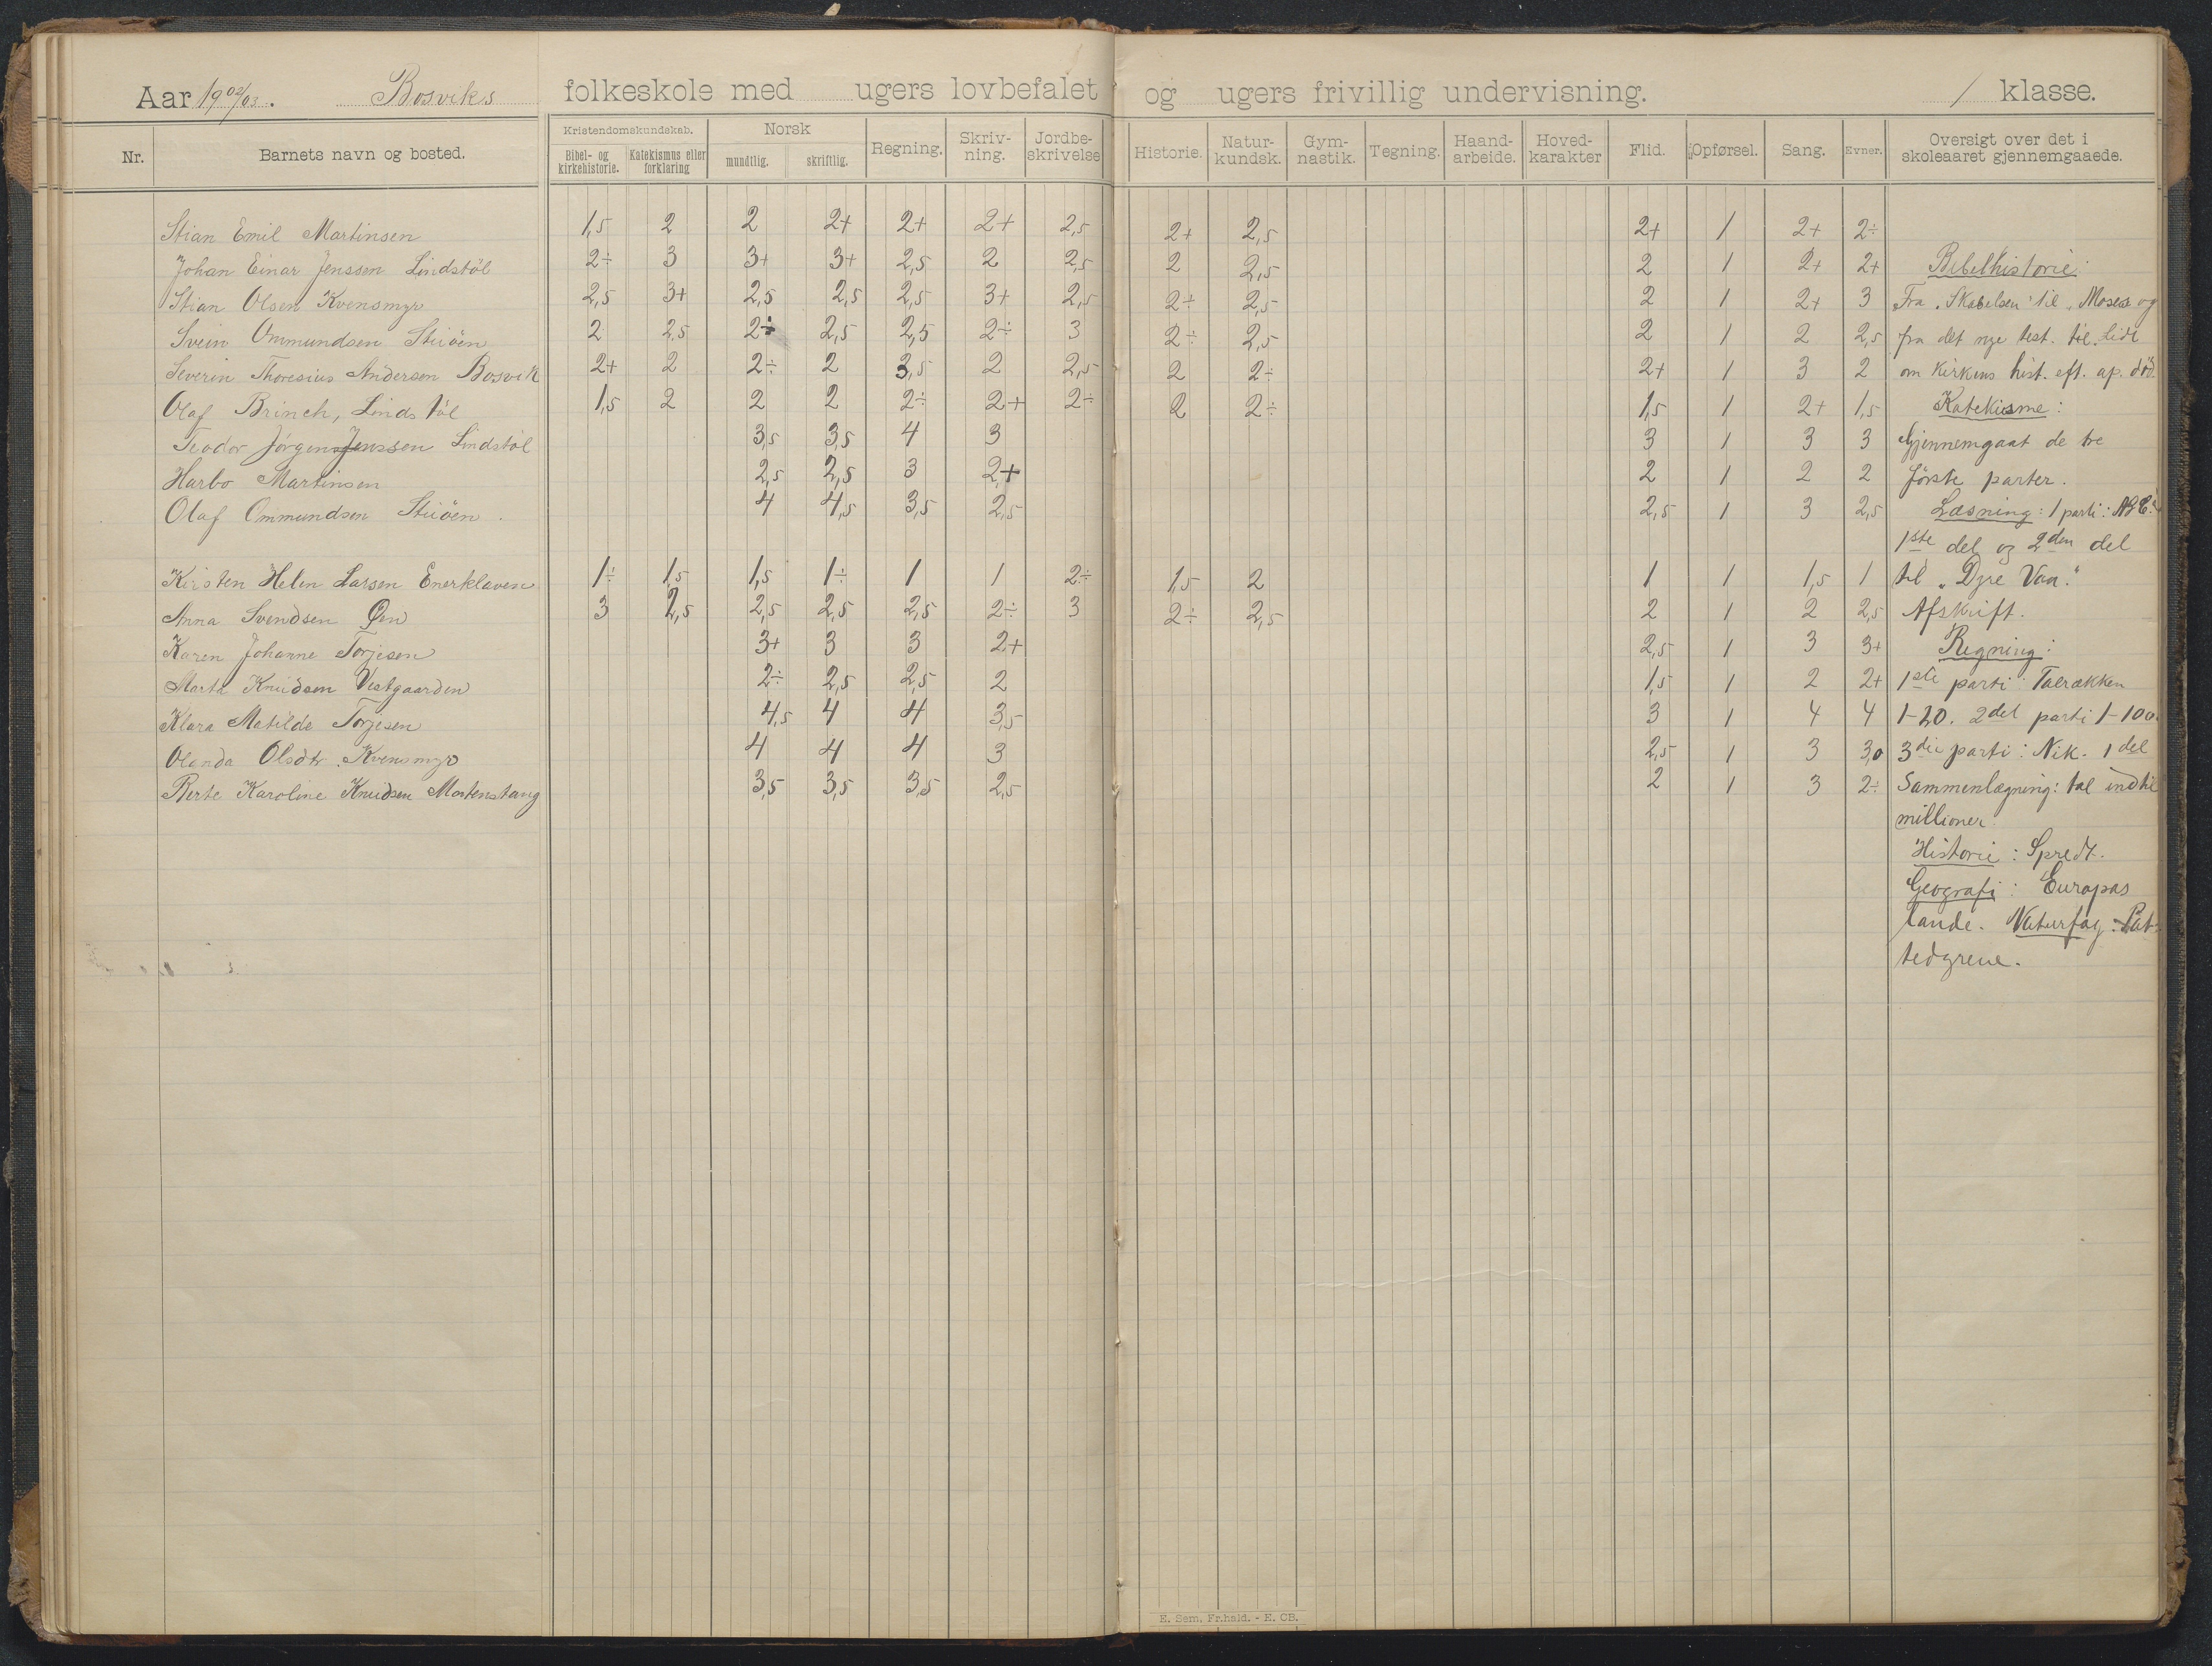 Aar 1902/03. Bosviks folkeskole med ugers lovbefalet og ugers frivillig undervisning. 1 klasse.
Nr. Barnets navn og bosted. Kristendomskundskab. Bibel- og kirkehistorie. Katekismus eller forklaring Norsk mundtlig. skriftlig. Regning. Skriv-ning. Jordbe-skrivelse Historie. Natur-kundsk. Gym-nastik. Tegning. Haand-arbeide. Hoved-karakter Flid. Opførsel. Sang. Evner. Oversigt over det i skoleaaret gjennemgaaede.
Stian Emil Martinsen 1,5 2 2 2+ 2+ 2+ 2,5 2+ 2,5 2+ 1 2+ 2÷
Johan Einar Jenssen Lindstöl 2÷ 3 3+ 3+ 2,5 2 2,5 2 2,5 2 1 2+ 2+ Bibelhistorie:
Stian Olsen Kvensmyr 2,5 3+ 2,5 2,5 2,5 3+ 2,5 2÷ 2,5 2 1 2+ 3 Fra "Skabelsen" til "Moses og
Svein Ommundsen Stiöen 2 2,5 2÷ 2,5 2,5 2÷ 3 2÷ 2,5 2 1 2 2,5 fra det nye test. til Lidt
Severin Thoresius Andersen Bosvik 2+ 2 2÷ 2 3,5 2 2,5 2 2÷ 2+ 1 3 2 om Kirkens hist. eft. ap. död.
Olaf Brinch, Lindstöl 1,5 2 2 2 2÷ 2+ 2÷ 2 2÷ 1,5 1 2+ 1,5 Katekisme:
Teodor Jörgen Jenssen Lindstöl 3,5 3,5 4 3 3 1 3 3 Gjennemgaat de tre
Harbo Martinsen 2,5 2,5 3 2+ 2 1 2 2 förste parter.
Olaf Ommundsen Stiöen. 4 4,5 3,5 2,5 2,5 1 3 2,5 Læsning: 1 parti: ABC.
1ste del og 2den del
Kirsten Helen Larsen Enerklaven 1÷ 1,5 1,5 1÷ 1 1 2÷ 1,5 2 1 1 1,5 1 til "Dyre Vaa."
Anna Svendsen Øen 3 2,5 2,5 2,5 2,5 2÷ 3 2÷ 2,5 2 1 2 2,5 Afskrift.
Karen Johanne Torjesen 3+ 3 3 2+ 2,5 1 3 3+ Regning:
Marta Knudsen Vestgaarden 2÷ 2,5 2,5 2 1,5 1 2 2+ 1ste parti: Talrækken
Klara Matilde Torjesen 4,5 4 4 3,5 3 1 4 4 1-20. 2det parti 1-100
Olanda Olsdtr. Kvensmyr 4 4 4 3 2,5 1 3 3,0 3die parti: Nik. 1 del
Berte Karoline Knudsen Mortenstang 3,5 3,5 3,5 2,5 2 1 3 2÷ Sammenlægning: tal indtil
millioner.
Historie: Spredt.
Geografi: Europas
lande. Naturfag: Pat-
tedyrene.
E. Sem, Fr.hald. - E. CB.